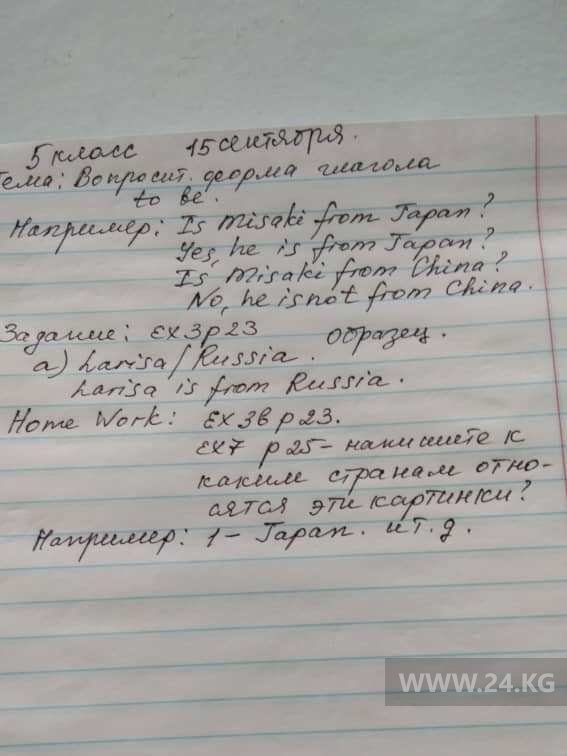 5 класс 15 сентября.
Тема: Вопросит. форма глагола
to be.
Например: Is Misaki from Japan?
Yes, he is from Japan?
Is Misaki from China?
No, he is not from China.
Задание: Ex 3 p 23 образец.
a) Larisa/Russia.
Larisa is from Russia.
Home Work: Ex 3b p 23.
Ex 7 p 25 - напишите к
каким странам отно-
сятся эти картинки?
Например: 1 - Japan. и т. д.
WWW.24.KG